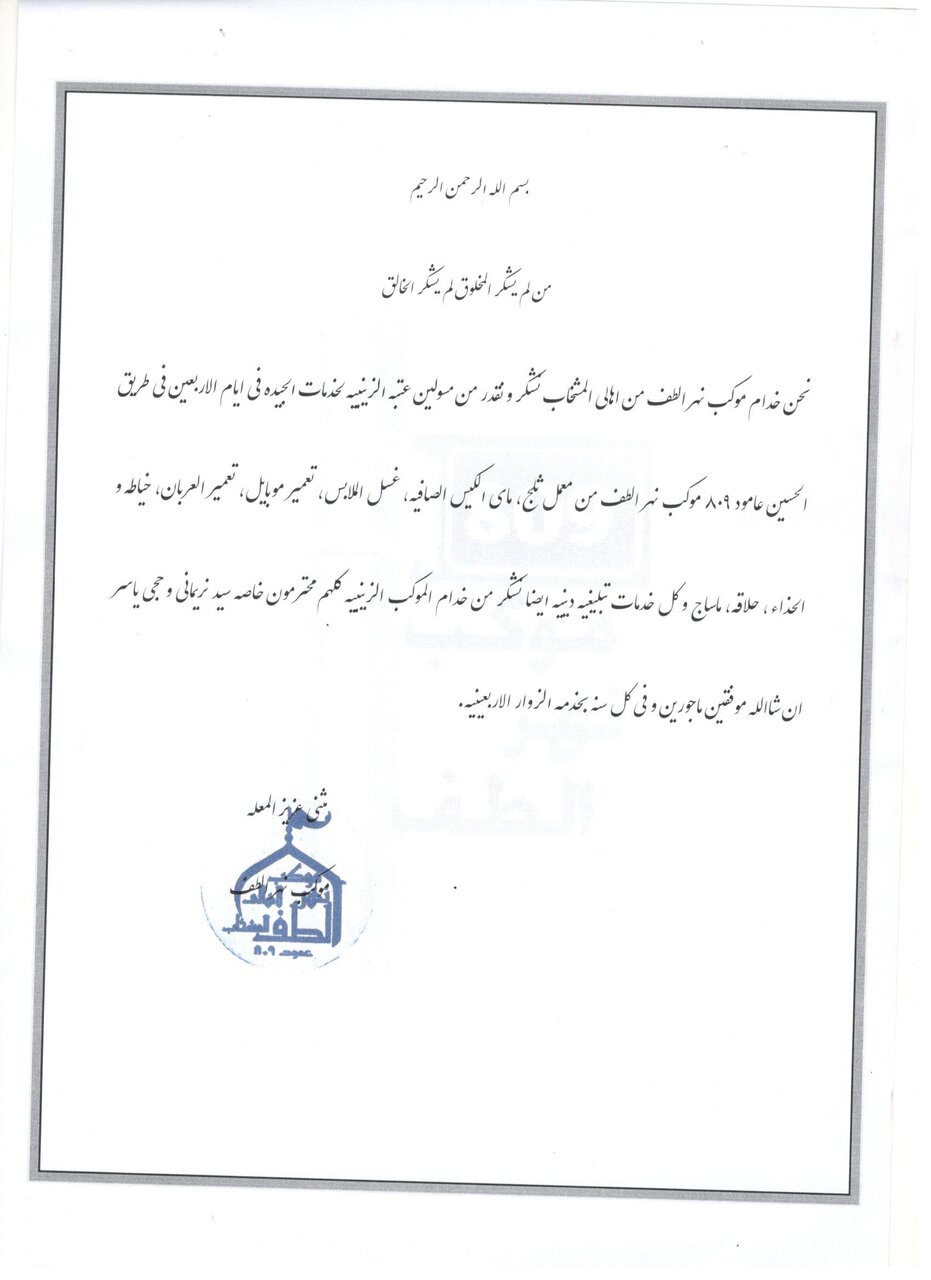 بسم الله الرحمن الرحیم
من لم یشکر المخلوق لم یشکر الخالق
نحن خدام موکب نهر الطف من اهالی المشخاب نشکر و نقدر من مسولین عتبه الزینبیه لخدمات الجیده فی ایام الاربعین فی طریق
الحسین عامود ۸۰۹ موکب نهر الطف من معمل ثلج، مای الکیس الصافیه، غسل الملابس، تعمیر موبایل، تعمیر العربان، خیاطه و
الحذاء، حلاقه، ماساج و کل خدمات تبلیغیه دینیه ایضا نشکر من خدام الموکب الزینبیه کلهم محترمون خاصه سید نریمانی و حجی یاسر
ان شاالله موفقین ماجورین و فی کل سنه بخدمه الزوار الاربعینیه.
مثنی عزیز المعله
موکب نهر الطف
موکب
نهر
الطف
عمود ۸۰۹
809
موکب
نهر
الطف